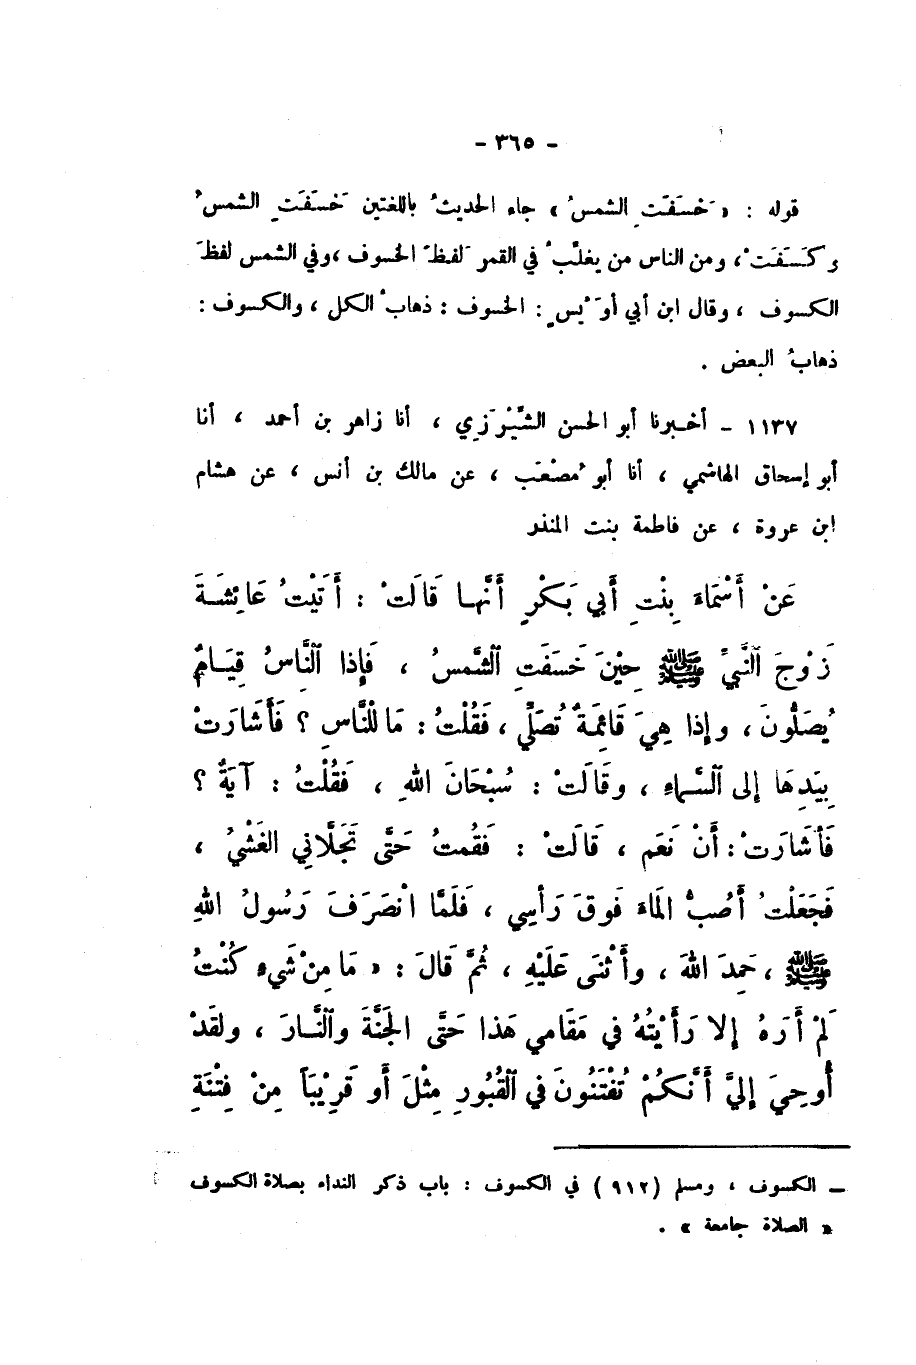 - ٣٦٥ -
قوله : « خَسَفَتِ الشمسُ » جاء الحديثُ باللغتين خَسَفَتِ الشمسُ
وكَسَفَتْ ، ومن الناس من يغلِّبُ في القمر لفظَ الخسوف ، وفي الشمس لفظَ
الكسوف ، وقال ابن أبي أُوَيْسٍ : الخسوف : ذهابُ الكل ، والكسوف :
ذهابُ البعض .
١١٣٧ - أخبرنا أبو الحسن الشَّيْرَزِي ، أنا زاهر بن أحمد ، أنا
أبو إسحاق الهاشمي ، أنا أبو مُصْعَب ، عن مالك بن أنس ، عن هشام
ابن عروة ، عن فاطمة بنت المنذر
عَنْ أَسْمَاءَ بِنْتِ أَبِي بَكْرٍ أَنَّها قَالَتْ : أَتَيْتُ عَائِشَةَ
زَوْجَ النَّبِيِّ ﷺ حِيْنَ خَسَفَتِ الشَّمسُ ، فَإِذا النَّاسُ قِيَامٌ
يُصَلُّونَ ، وإذا هِيَ قَائِمَةٌ تُصَلِّي ، فَقُلْتُ : مَا لْلنَّاسِ ؟ فَأَشَارَتْ
بِيَدِهَا إِلى السَّماءِ ، وقَالَتْ : سُبْحَانَ اللهِ ، فَقُلْتُ : آيَةٌ ؟
فَأَشَارَتْ : أَنْ نَعَم ، قَالَتْ : فَقُمتُ حَتَّى تَجَلَّاني الغَشْيُ ،
فَجَعَلْتُ أَصُبُّ المَاءَ فَوقَ رَأسِي ، فَلَمَّا انْصَرَفَ رَسُولُ اللهِ
ﷺ ، حَمِدَ اللهَ ، وأَثْنَى عَلَيْهِ ، ثُمَّ قَالَ : « مَا مِنْ شَيءٍ كُنْتُ
لَمْ أَرَهُ إِلا رَأَيْتُهُ فِي مَقَامي هَذا حَتَّى الجَنَّةَ والنَّارَ ، ولقَدْ
أُوحِيَ إِليَّ أَنَّكُمْ تُفْتَنُونَ في القُبُورِ مِثْلَ أَو قَرِيْبَاً مِنْ فِتْنَةِ
ـ الكسوف ، ومسلم (٩١٢) في الكسوف : باب ذكر النداء بصلاة الكسوف
« الصلاة جامعة » .